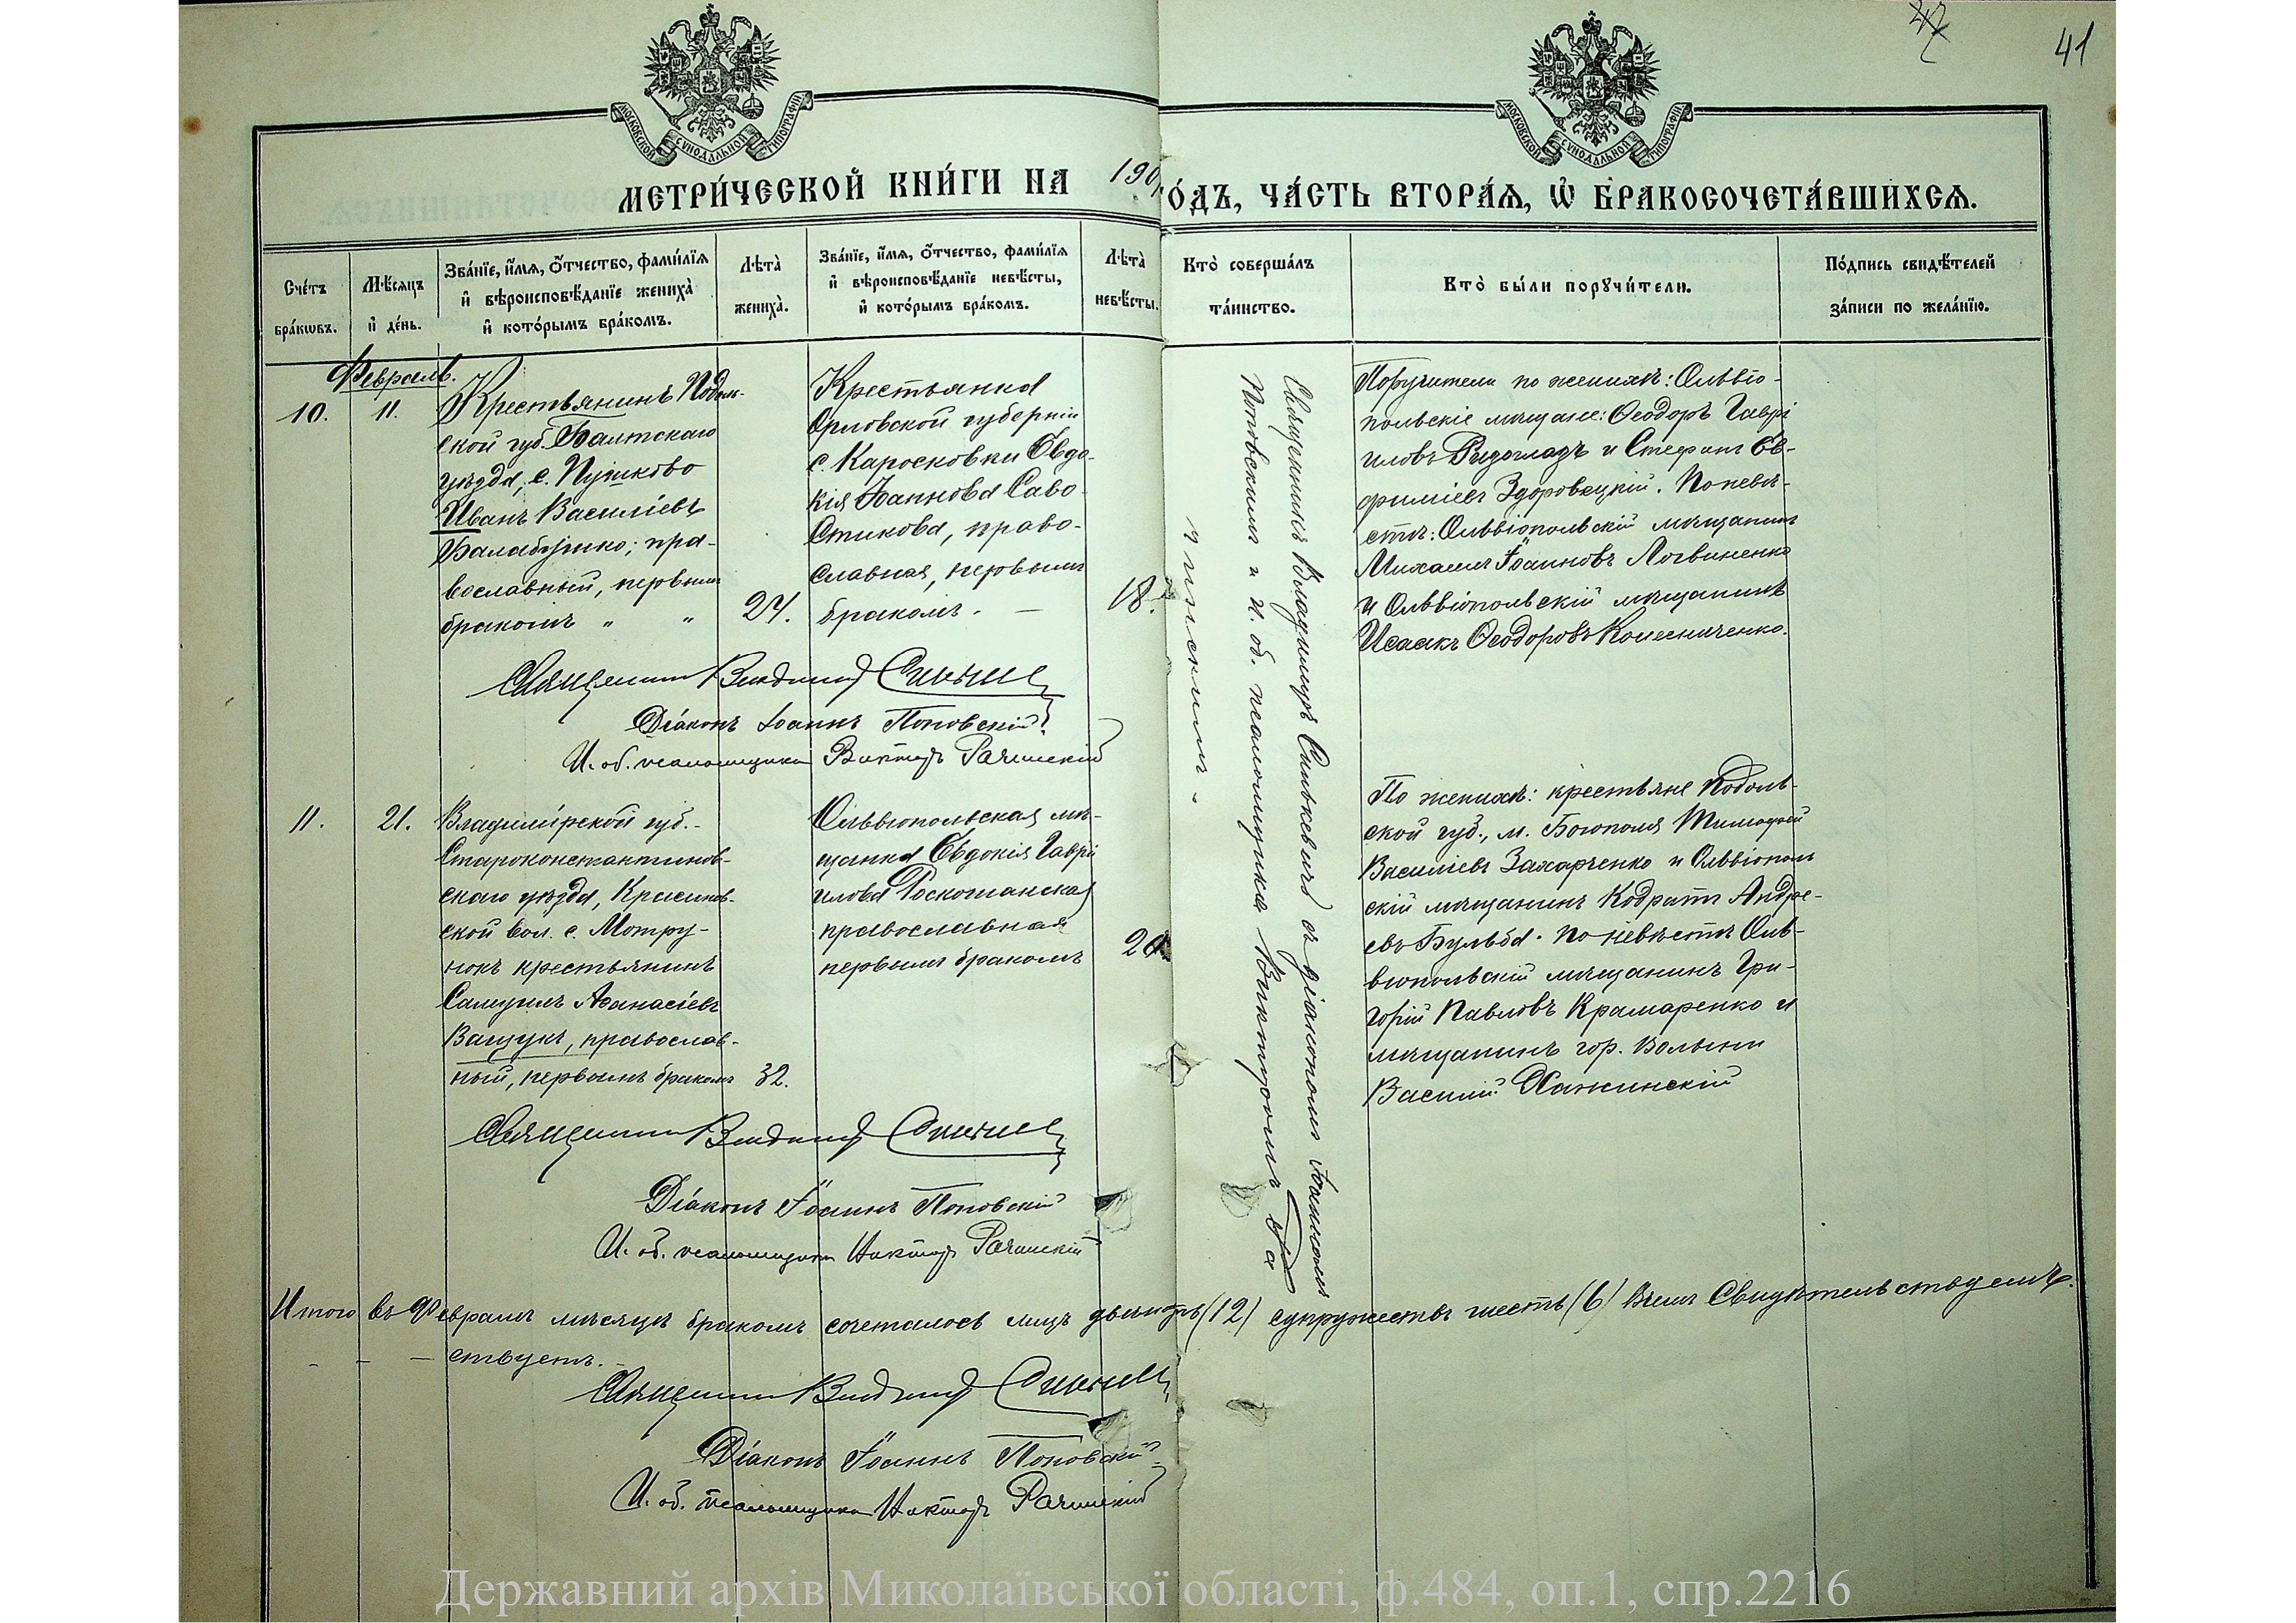 41
МОСКОВСКОЙ СѴНОДАЛЬНОЙ ТИПОГРАФІИ
МОСКОВСКОЙ СѴНОДАЛЬНОЙ ТИПОГРАФІИ
МЕТРИ́ЧЕСКОЙ КНИ́ГИ НА 190
О́ДЪ, ЧА́СТЬ ВТОРА́Ѧ, Ѡ҆ БРАКОСОЧЕТА́ВШИХСѦ.
Сче́тъ бра́кѡвъ.
Мѣ́сѧцъ и҆ де́нь.
Зва́нїе, и҆́мѧ, ѻ҆́тчество, фами́лїѧ и҆ вѣроисповѣ́данїе жениха̀ и҆ кото́рымъ бра́комъ.
Лѣта̀ жениха̀.
Зва́нїе, и҆́мѧ, ѻ҆́тчество, фами́лїѧ и҆ вѣроисповѣ́данїе невѣ́сты, и҆ кото́рымъ бра́комъ.
Лѣта̀ невѣ́сты.
Кто̀ соверша́лъ та́инство.
Кто̀ бы́ли порꙋчи́тели.
По́дпись свидѣ́телей за́писи по жела́нїю.
Февраль.
10.
11.
Крестьянинъ Подоль-
ской губ. Балтскаго
уѣзда, с. Пушково
Иванъ Василіевъ
Балабушко; пра-
вославный, первымъ
бракомъ „ „
24.
Крестьянка
Орловской губерніи
с. Каросковки Евдо-
кія Іоаннова Саво-
стикова, право-
славная, первымъ
бракомъ. —
18.
Священникъ Владимиръ Синькевичъ съ діакономъ Іоанномъ
Поповскимъ и и. об. псаломщика Викторомъ Ра
чинскимъ.
Поручители по женихѣ: Ольвіо-
польскіе мѣщане: Ѳеодоръ Гаврі
иловъ и Стефанъ Ев-
фиміевъ Здоровецкій. По невѣ-
стѣ: Ольвіопольскій мѣщанинъ
Михаилъ Іоанновъ Логвиненко
и Ольвіопольскій мѣщанинъ
Исаакъ Ѳеодоровъ Колесниченко.
Священникъ Владимиръ
Діаконъ Іоаннъ Поповскій
И. об. псаломщика Викторъ Рачинскій
11.
21.
Владимірской губ.
Староконстантинов-
скаго уѣзда, Красилов-
ской вол. с. Мотру-
нокъ крестьянинъ
Самуилъ Аѳанасіевъ
Ващукъ, православ-
ный, первымъ бракомъ
32.
Ольвіопольская мѣ-
щанка Евдокія Гаврі
илова Роскошанская
православная
первымъ бракомъ
По женихѣ: крестьяне Подоль-
ской губ., м. Богополя Тимоѳей
Василіевъ Захарченко и Ольвіополь
скій мѣщанинъ Кодратъ Андре-
евъ Бульба. По невѣстѣ Оль-
віопольскій мѣщанинъ Гри-
горій Павловъ Крамаренко и
мѣщанинъ гор. Волыни
Василій
Священникъ Владимиръ
Діаконъ Іоаннъ Поповскій
И. об. псаломщика Викторъ Рачинскій
Итого въ Февралѣ мѣсяцѣ бракомъ сочеталось лицъ двѣнадцать (12) супружествъ шесть (6) въ чемъ Свидѣтельствуемъ.
- - - ствуетъ.
Священникъ Владимиръ
Діаконъ Іоаннъ Поповскій
И. об. псаломщика Викторъ Рачинскій
Державний архів Миколаївської області, ф.484, оп.1, спр.2216